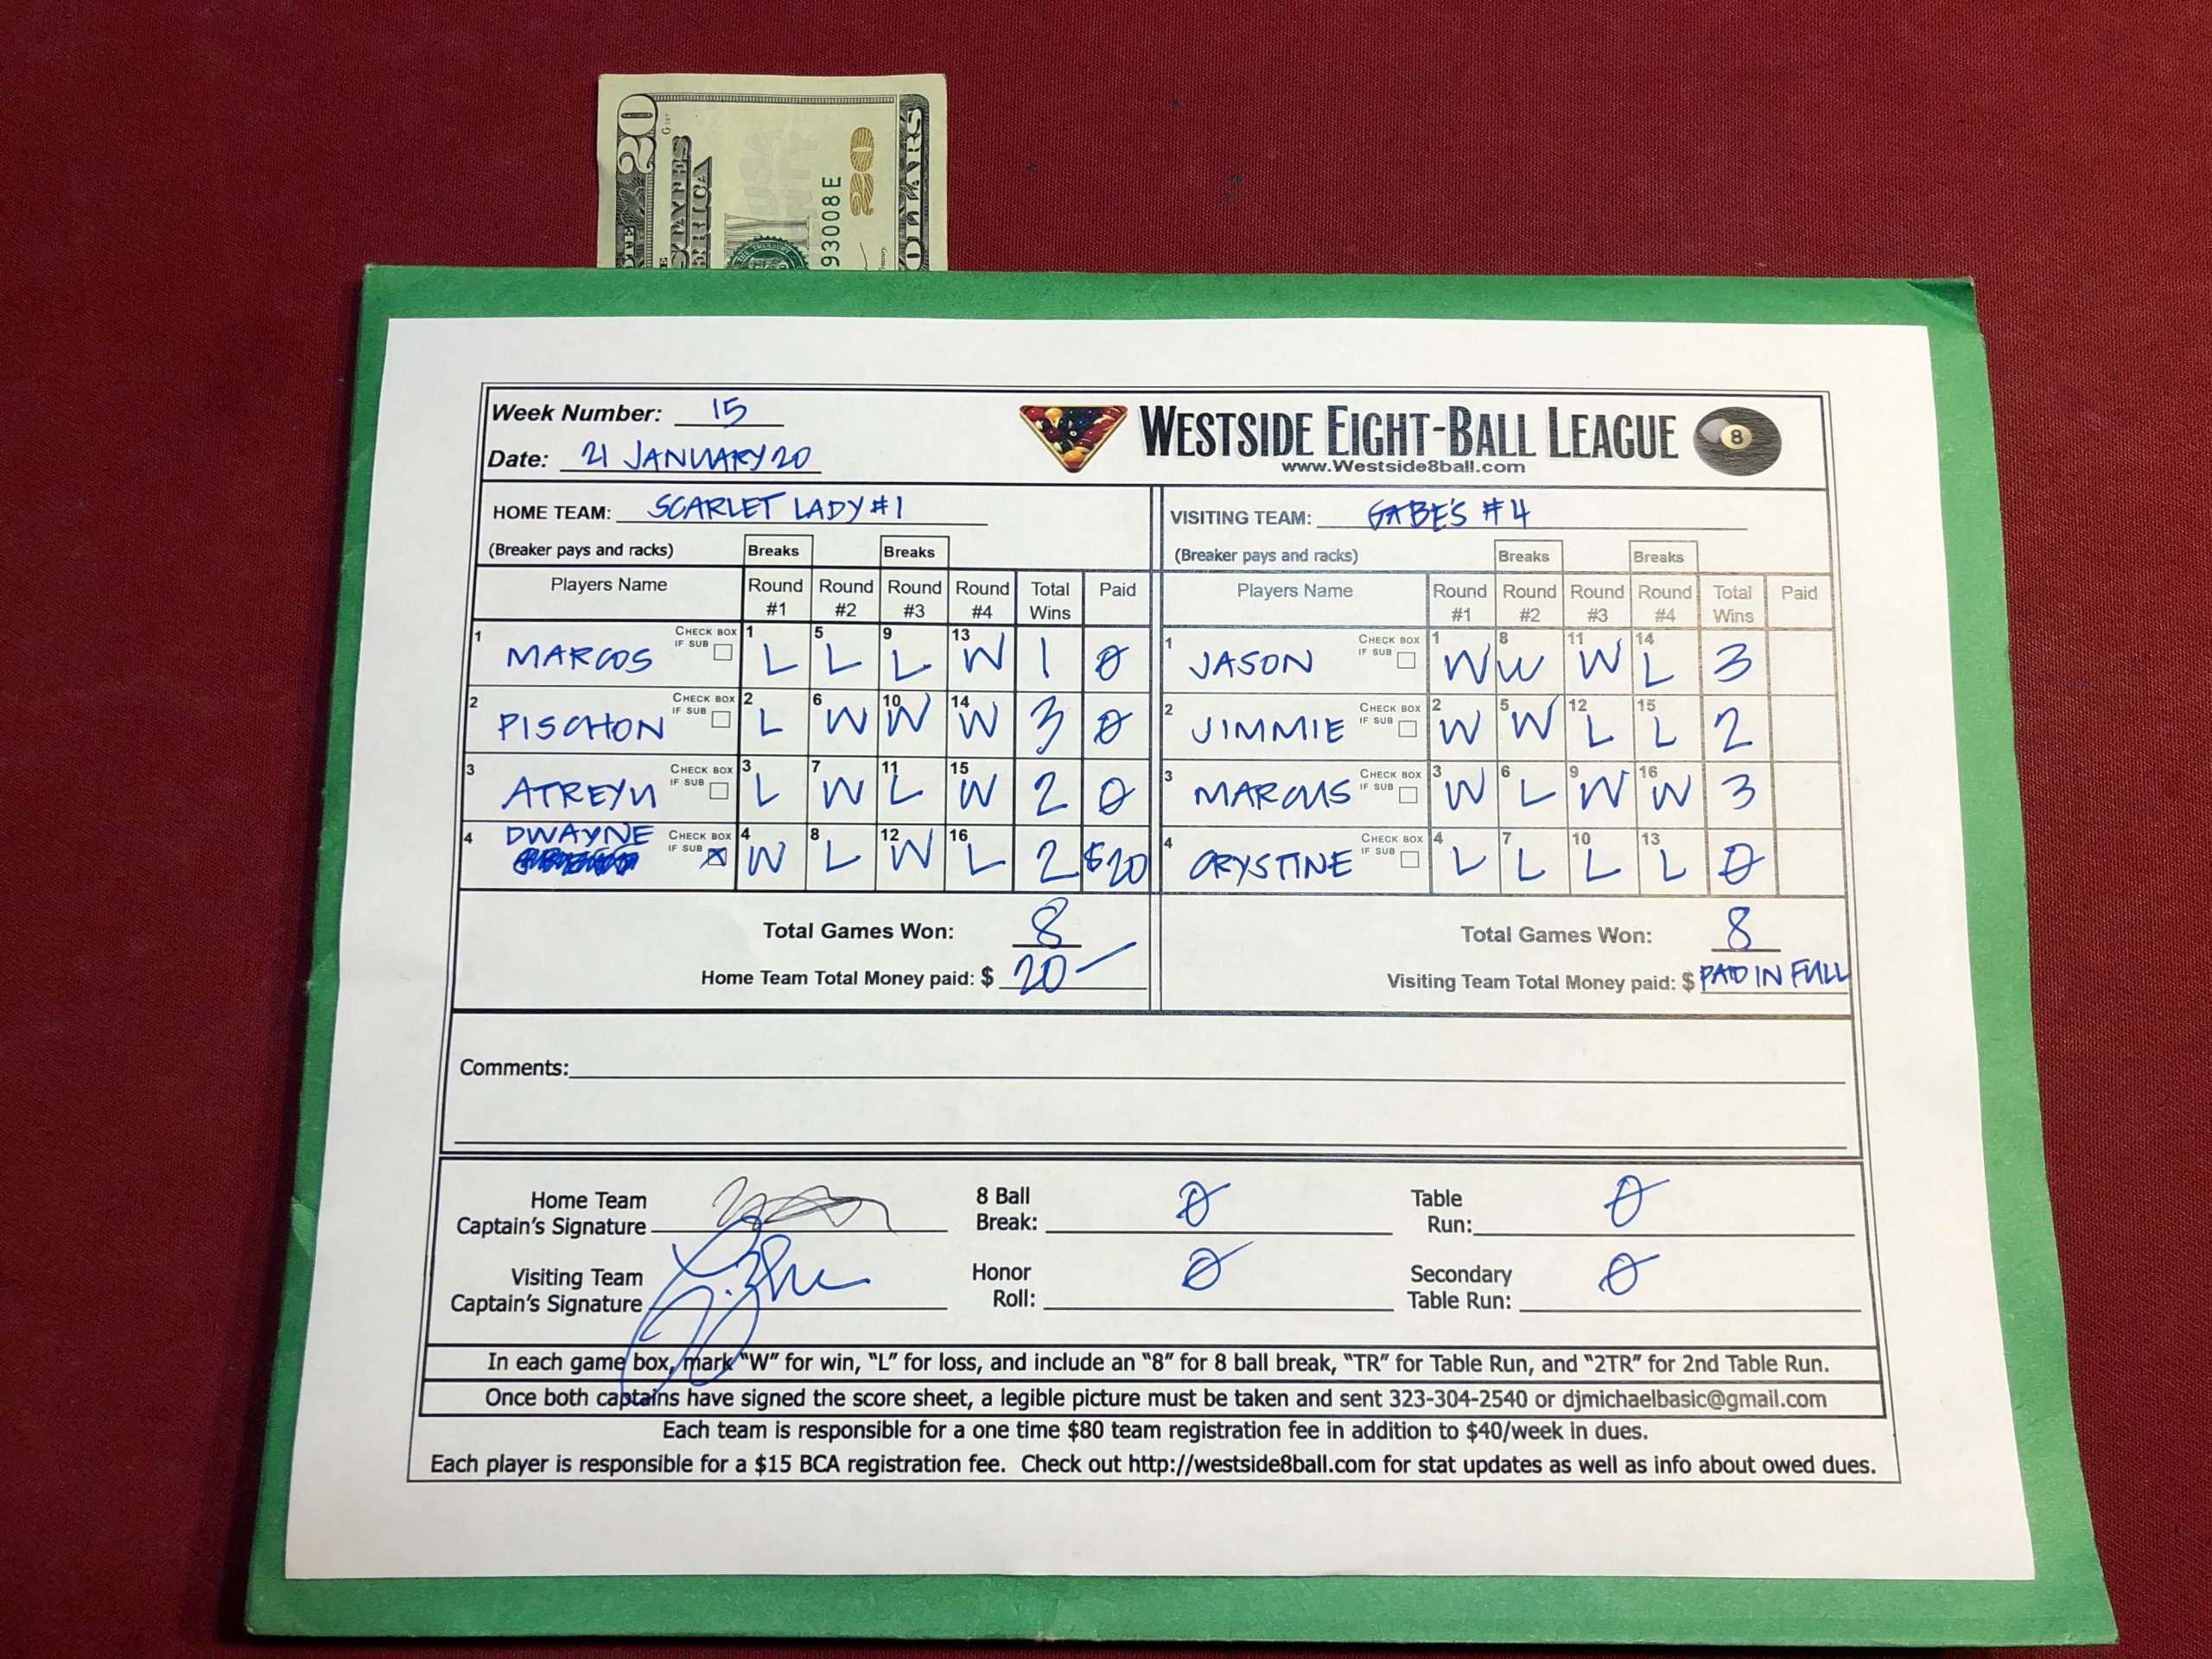 20
STATES
ERICA
USA
93008E
20
Week Number: 15
Date: 21 JANUARY 20
WESTSIDE EIGHT-BALL LEAGUE
8
www.Westside8ball.com
HOME TEAM: SCARLET LADY #1
(Breaker pays and racks) Breaks Breaks
Players Name Round #1 Round #2 Round #3 Round #4 Total Wins Paid
1 MARCOS CHECK BOX IF SUB 1 L 5 L 9 L 13 W 1 0
2 PISCHON CHECK BOX IF SUB 2 L 6 W 10 W 14 W 3 0
3 ATREYU CHECK BOX IF SUB 3 L 7 W 11 L 15 W 2 0
4 DWAYNE CHECK BOX IF SUB X 4 W 8 L 12 W 16 L 2 $20
Total Games Won: 8
Home Team Total Money paid: $ 20 —
VISITING TEAM: GABE'S #4
(Breaker pays and racks) Breaks Breaks
Players Name Round #1 Round #2 Round #3 Round #4 Total Wins Paid
1 JASON CHECK BOX IF SUB 1 W 8 W 11 W 14 L 3
2 JIMMIE CHECK BOX IF SUB 2 W 5 W 12 L 15 L 2
3 MARCUS CHECK BOX IF SUB 3 W 6 L 9 W 16 W 3
4 CRYSTINE CHECK BOX IF SUB 4 L 7 L 10 L 13 L 0
Total Games Won: 8
Visiting Team Total Money paid: $ PAID IN FULL
Comments:
Home Team Captain's Signature
8 Ball Break: 0
Table Run: 0
Visiting Team Captain's Signature
Honor Roll: 0
Secondary Table Run: 0
In each game box, mark "W" for win, "L" for loss, and include an "8" for 8 ball break, "TR" for Table Run, and "2TR" for 2nd Table Run.
Once both captains have signed the score sheet, a legible picture must be taken and sent 323-304-2540 or djmichaelbasic@gmail.com
Each team is responsible for a one time $80 team registration fee in addition to $40/week in dues.
Each player is responsible for a $15 BCA registration fee. Check out http://westside8ball.com for stat updates as well as info about owed dues.